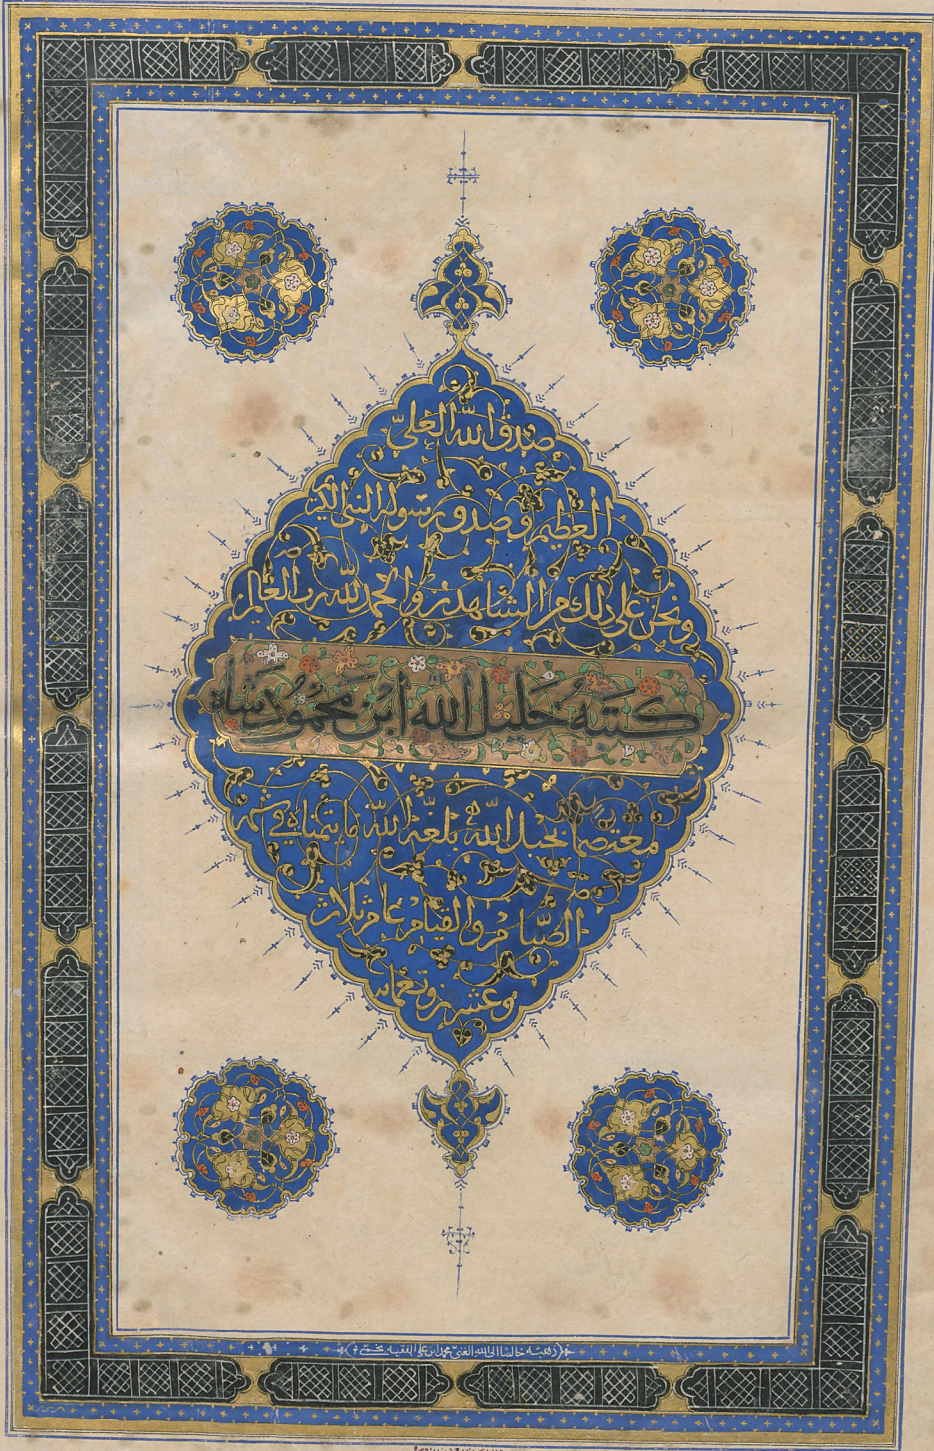 صدق الله العلي
العظيم وصدق رسوله النبي الكريم
ونحن على ذلك من الشاهدين والحمد لله رب العالمين
كتبه خليل الله ابن محمود شاه
معتصما بحبل الله بلغه الله ما يتمناه في شهر
الصيام والقيام عام ثلاث
وعشرين وتعماىه
ذهبه خالصا الى الله الغني محمد ابن علي الفقيه